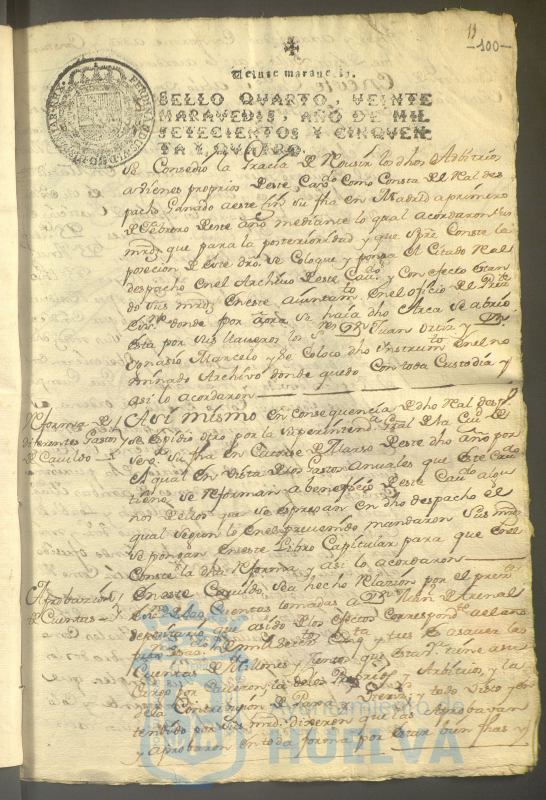 11
-100-
Veinte maravedis.
SELLO QVARTO, VEINTE
MARAVEDIS, AÑO DE MIL
SETECIENTOS Y CINQVEN-
TA Y QVATRO.
Se Consedio la Gracia de los dhos Arbitrios
Como Consta del Rl des
pacho Ganado a este fin su fha en Madrid a primero
de Febrero deste año mediante lo qual acordaron sus
mrds que para la posterioridad y que Conste la
posecion de este dro. se Coloque y ponga el Citado Real
despacho en el Archivo deste Cavdo y Con efecto estan
do sus mrds en este Ayuntamto en el oficio del
donde por aora se haia dho Arca se abrio
esta por sus llaveros los Sres Dn Juan Ortiz y Dn
Ygnasio Marcelo y se Coloco dho instrumto en el no
minado Archivo donde quedo Con toda Custodia y
asi lo acordaron
Reforma de
diferentes Gastos
de Cavildo
Asi mismo en Consequencia de dho Real despo
se espidio otro por la superintenda Gral de la Ciud de
Seva su fha en Catorse de Marzo deste dho año por
el qual en vista de los Gastos anuales que este Cavdo
tiene, se reforman a beneficio deste Cavdo algu
nos dellos que se espresan en dho despacho el
qual segun lo en el prevenido mandaron sus mrds
se ponga en este Libro Capitular para que en el
Conste la dha Reforma y asi lo acordaron
Aprobacion
de Cuentas
En este Cavildo, sea hecho Relazion por el prente
de las Cuentas tomadas a Dn Juan de Arenal
depositario que a sido de los efectos Correspondtes al año
de mil setectos Cinqta y tres es a saver las
Cuentas de Millones y Zientos que esta Va tiene a su
Cargo por los Propios y Arbitrios, y la
de la Contribuzion de y todo visto y
tendido por sus mrds dixeron que las Aprobavan
y aprobaron en toda forma por estar bien fhas y
Ayuntamiento de
HUELVA